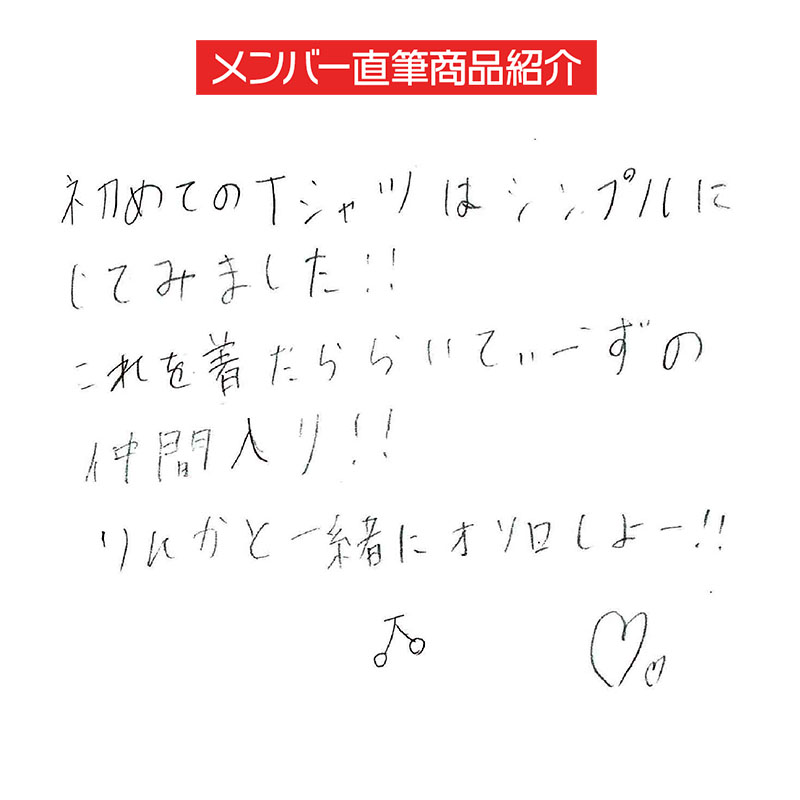 メンバー直筆商品紹介
初めてのTシャツはシンプルに
してみました!!
これを着たららいてぃーずの
仲間入り!!
りんかと一緒にオソロしよー!!